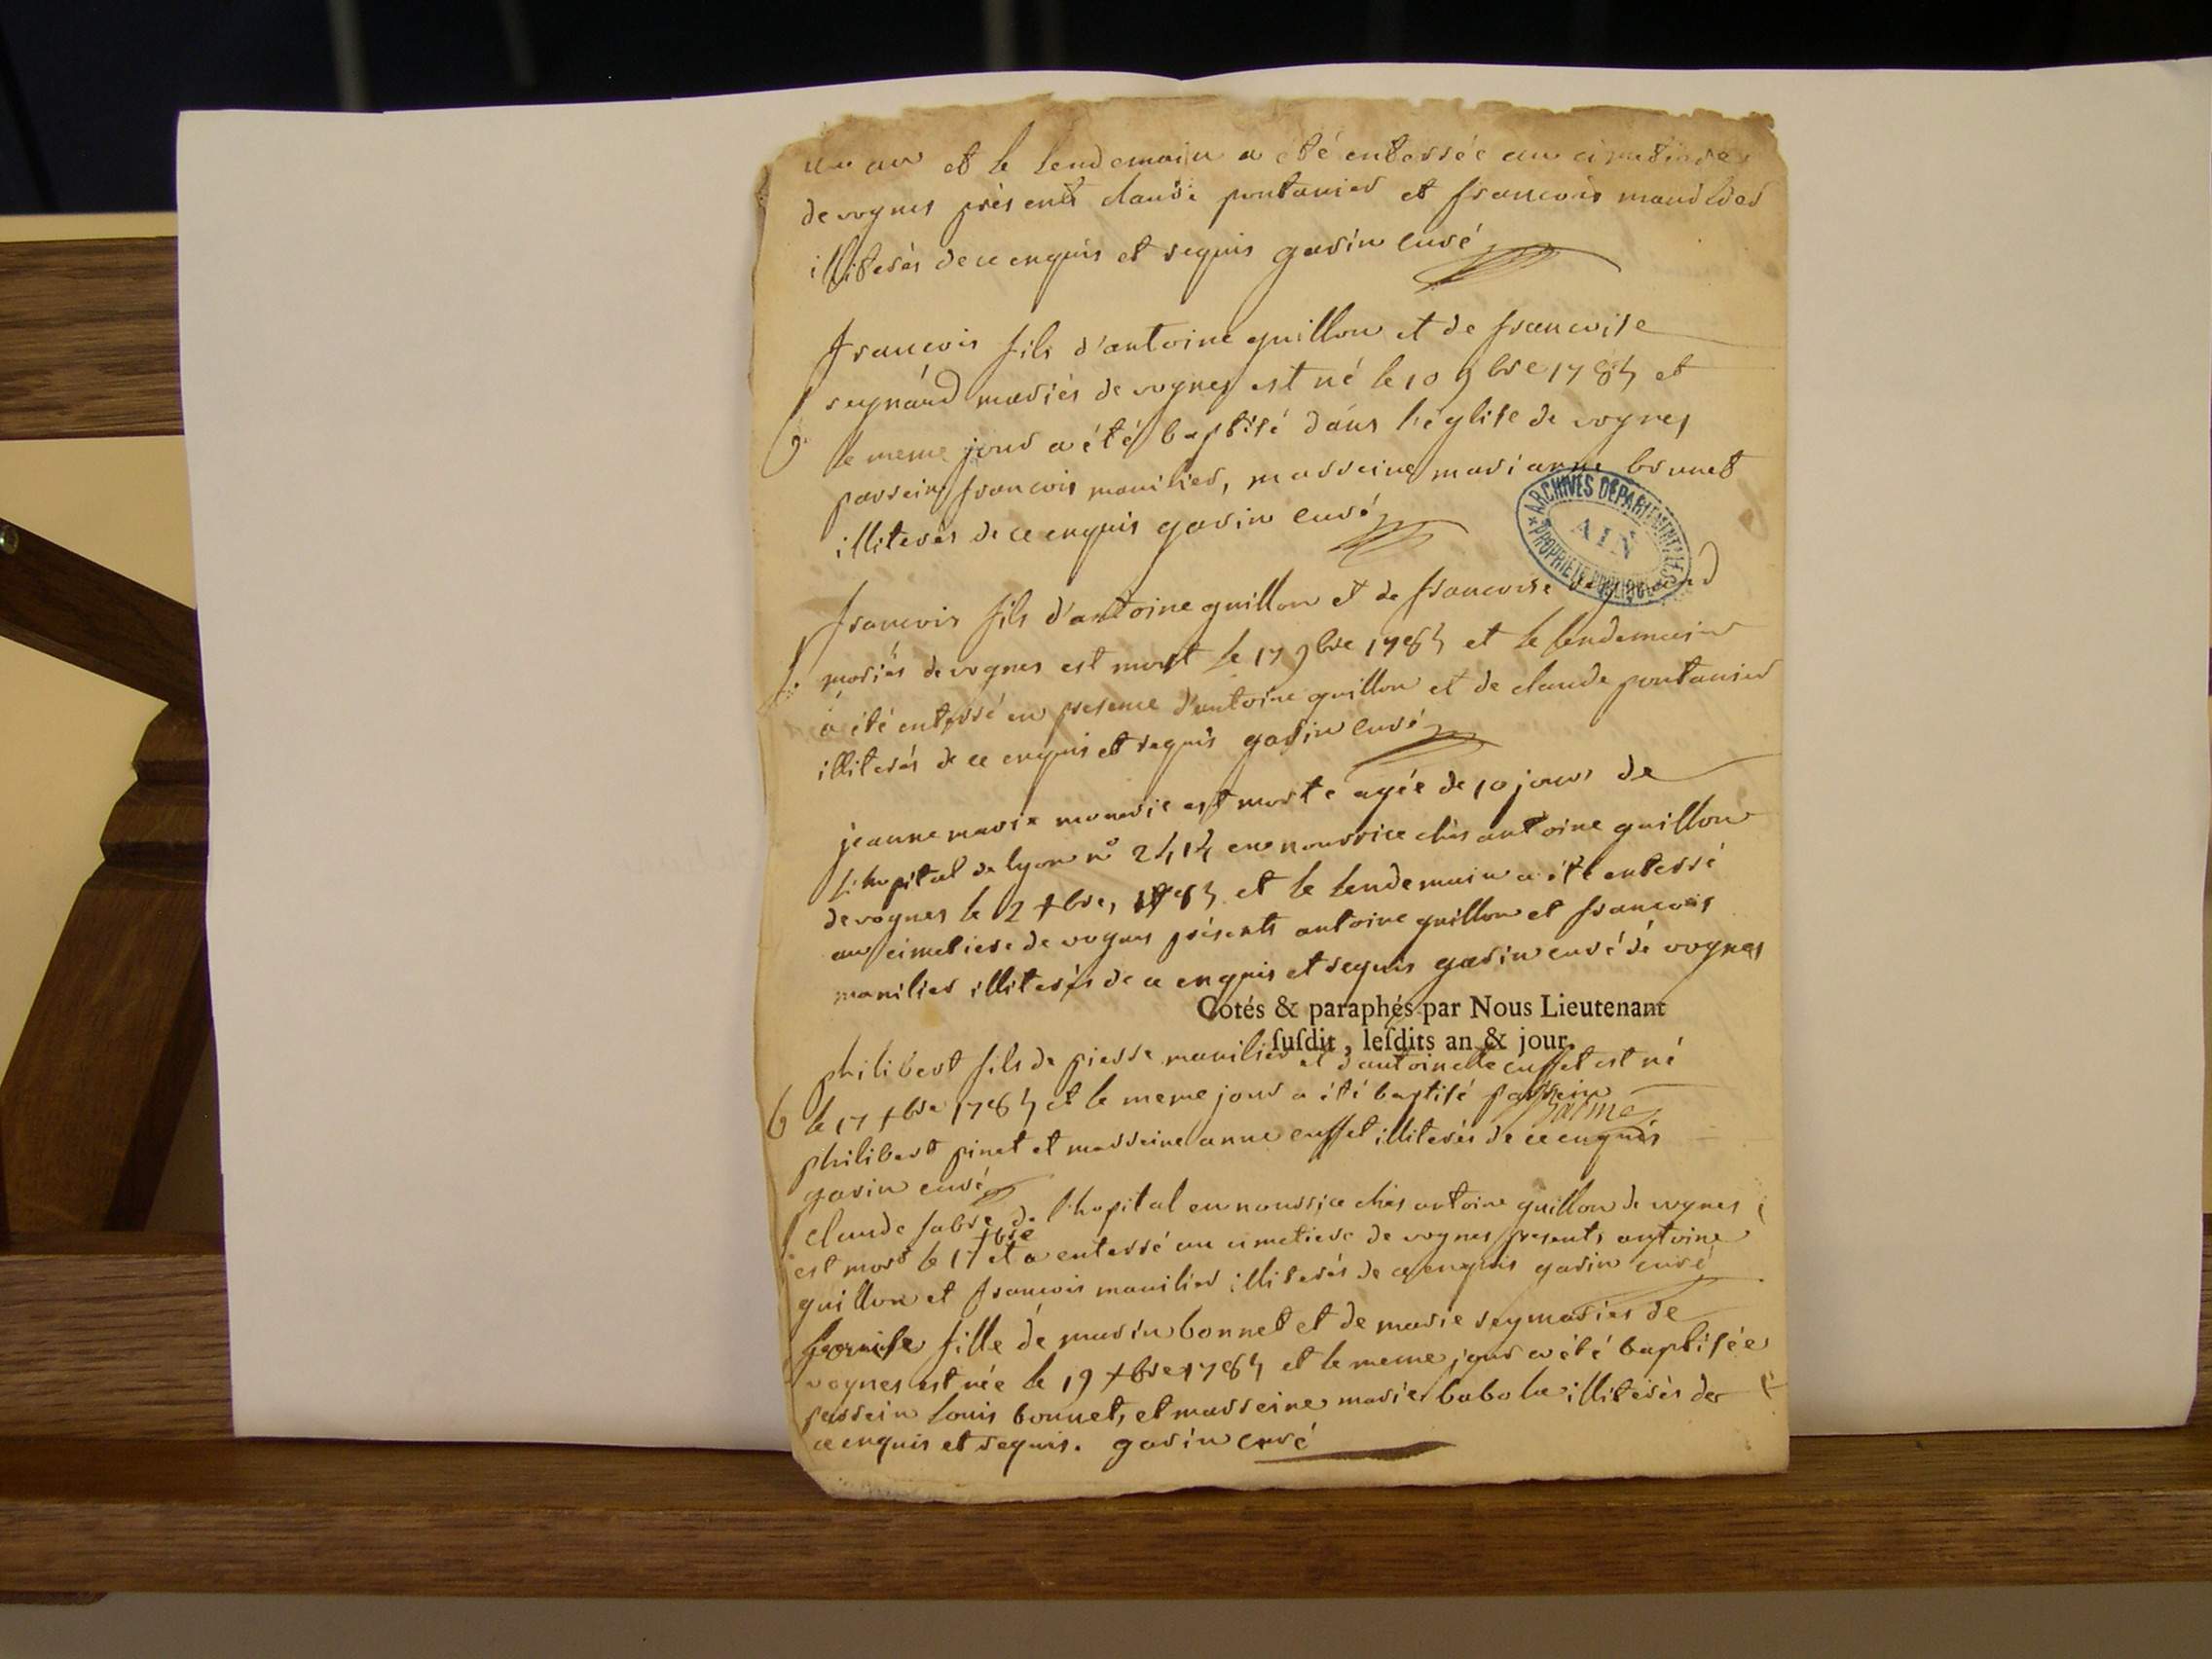 un an et le lendemain a été enterrée au cimetiere
de vognes présent claude pontanier et francois manilier
illiterés de ce enquis et requis garin curé
françois fils d'antoine guillon et de francoise
reynaud mariés de vognes est né le 10 9bre 1784 et
b. le meme jour a été baptisé dans l'église de vognes
parrein francois manilier, marreine marianne brunet
illiterés de ce enquis garin curé
ARCHIVES DEPARTEMENTALES
AIN
PROPRIETE PUBLIQUE
francois fils d'antoine guillon et de francoise
mariés de vognes est mort le 17 9bre 1784 et le lendemain
a été enterré en presence d'antoine guillon et de claude pontanier
illiterés de ce enquis et requis garin curé
jeanne marie est morte agée de 10 jours de
l'hopital de lyon n° 2414 en nourrice chés antoine guillon
de vognes le 2 xbre, 1784 et le lendemain a été enterré
au cimetiere de vognes présents antoine guillon et francois
manilier illiterés de ce enquis et requis garin curé de vognes
Cotés & paraphés par Nous Lieutenant
ſuſdit, leſdits an & jour.
philibert fils de pierre manilier et d'antoinette cuffet est né
b le 17 xbre 1784 et le meme jour a été baptisé parrein
philibert pinet et marreine anne cuffet illiterés de ce enquis
garin curé
claude fabre de l'hopital en nourrice chés antoine guillon de vognes
xbre
est mort le 17 et a enterré au cimetiere de vognes presents antoine
guillon et francois manilier illiterés de ce enquis garin curé
fille de marin bonnet et de marie rey mariés de
vognes est née le 19 xbre 1784 et le meme jour a été baptisée
parrein louis bonnet, et marreine marie babolu illiterés de
ce enquis et requis. garin curé